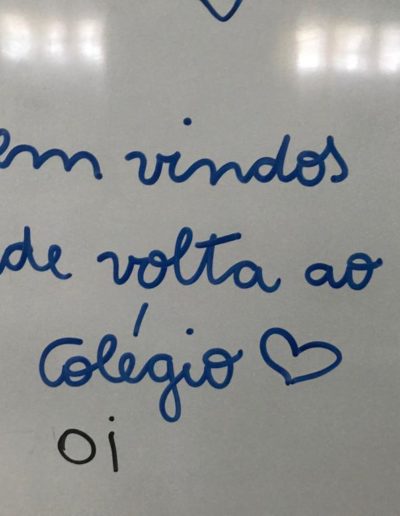 em vindos
de volta ao
Colégio
oi